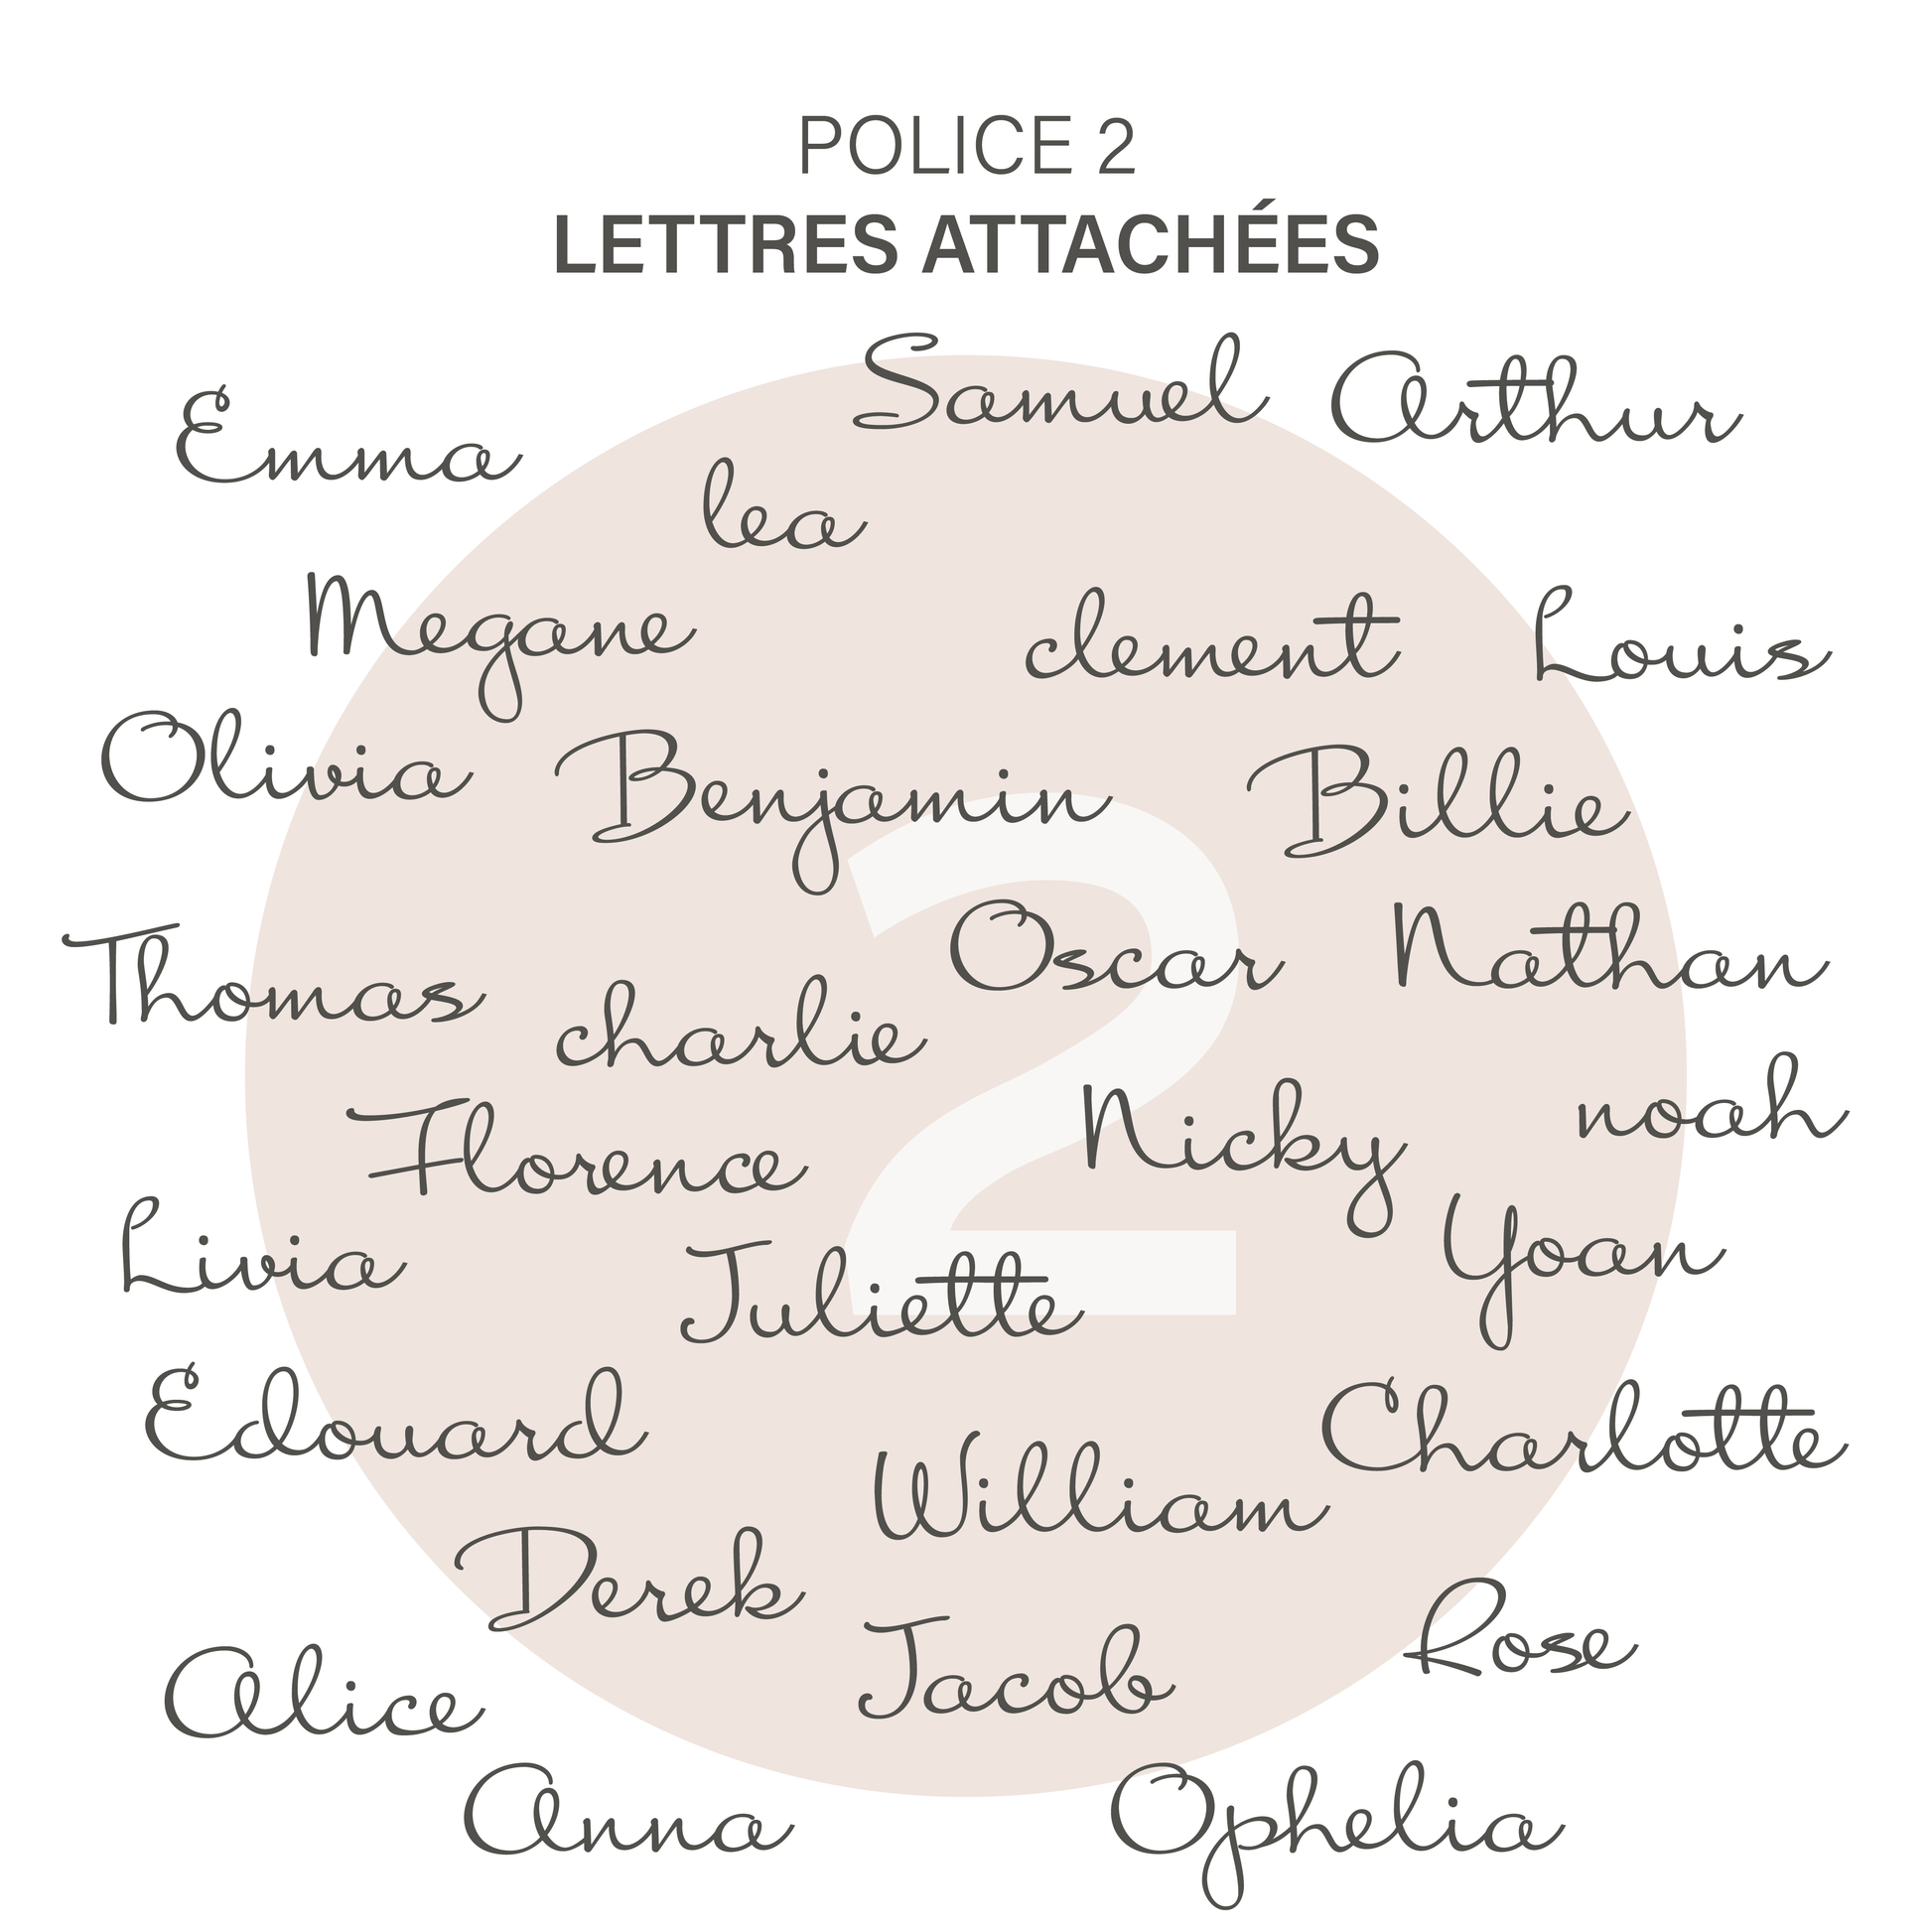 POLICE 2
LETTRES ATTACHÉES
Samuel Arthur
Emma
lea
Megane clement Louis
Olivia Benjamin Billie
Thomas Oscar Nathan
charlie
Florence Nicky noah
Livia Juliette Yoan
Edouard Charlotte
William
Derek
Jacob Rose
Alice
Anna Ophelia
2